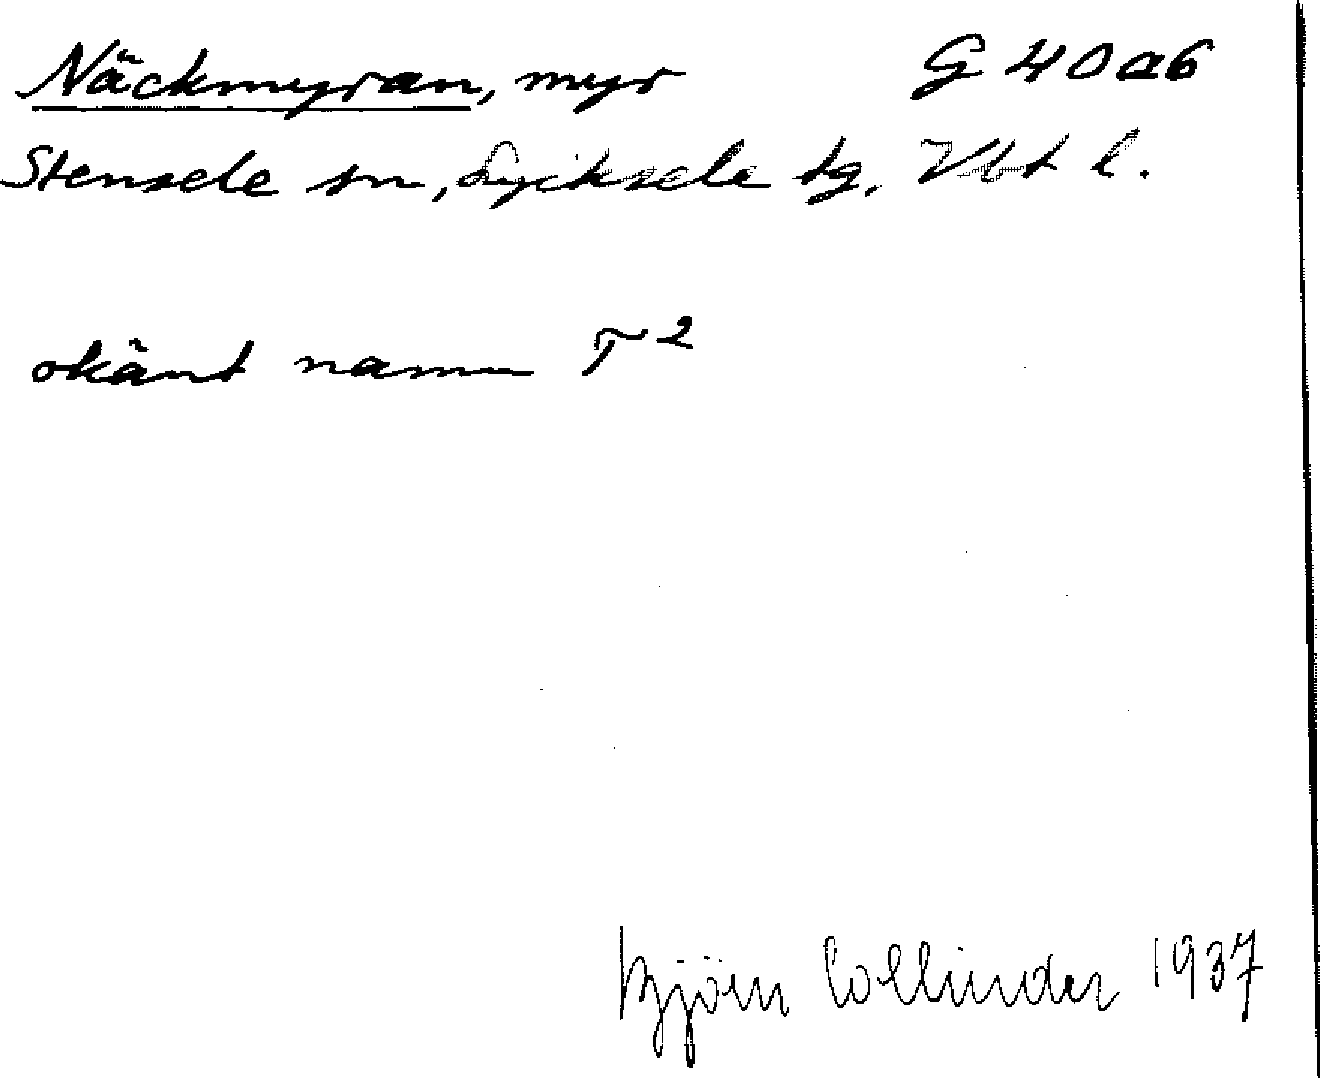 Näckmyran, myr G 40 a6
Stensele sn, Lycksele tg. Vbt l.
okänt namn T²
Björn Collinder 1937